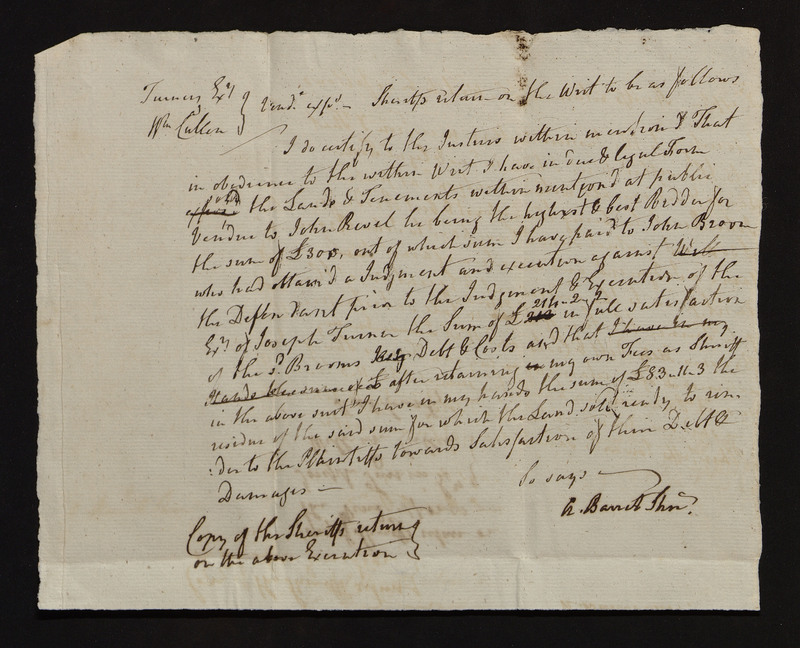 Turners Exrs } Vendi. expo. — Sheriffs return on the Writ to be as follows
Wm Cullen
I do certify to the Justices within mention'd That
in obedience to the within Writ I have in due & legal Form
expos'd sold the Lands & Tenements within mention'd at public
Vendue to John Revel he being the highest & best Bidder for
the sum of £305, out of which sum I have paid to John Broom
who had obtain'd a Judgment and execution against Will
the Defendant prior to the Judgment & Execution of the
Exrs of Joseph Turner the Sum of £ 211-2-9 in full satisfaction
of the sd. Brooms Debt & Costs and that I have in my
Hands after retaining my own Fees as Sheriff
in the above suit I have in my hands the sum of £83-11-3 the
residue of the said sum for which the Land sold ready to ren-
:der to the Plaintiffs towards Satisfaction of their Debt &
Damages —
So says —
A. Barrett Shff.
Copy of the Sheriffs return }
on the above Execution